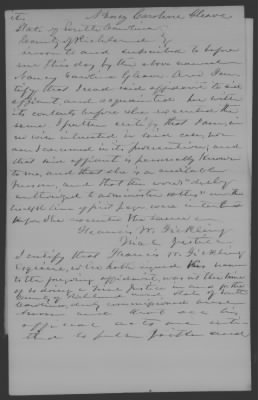 its Nancy Caroline Gleave
State of South Carolina
County of Richland }
Sworn to and subscribed to before
me this day by the above named
Nancy Caroline Gleave And I cer-
tify that I read said affidavit to said
affiant, and acquainted her with
its contents before she executed the
same. I further certify that I am in
no wise interested in said case, nor
am I concerned in its prosecution; and
that said affiant is personally known
to me, and that she is a creditable
person, and that the words "duly
authorized to administer oaths" in the
line of first page were inserted
before she executed the same
Francis W. Fickling
Trial Justice
I certify that Francis W. Fickling
Esquire, who hath signed his name
to the foregoing affidavit, was at the time
of so doing a Trial Justice in and for the
County of Richland and State of South
Carolina, duly commissioned and
sworn and that all his
official acts are enti-
tled to full faith and